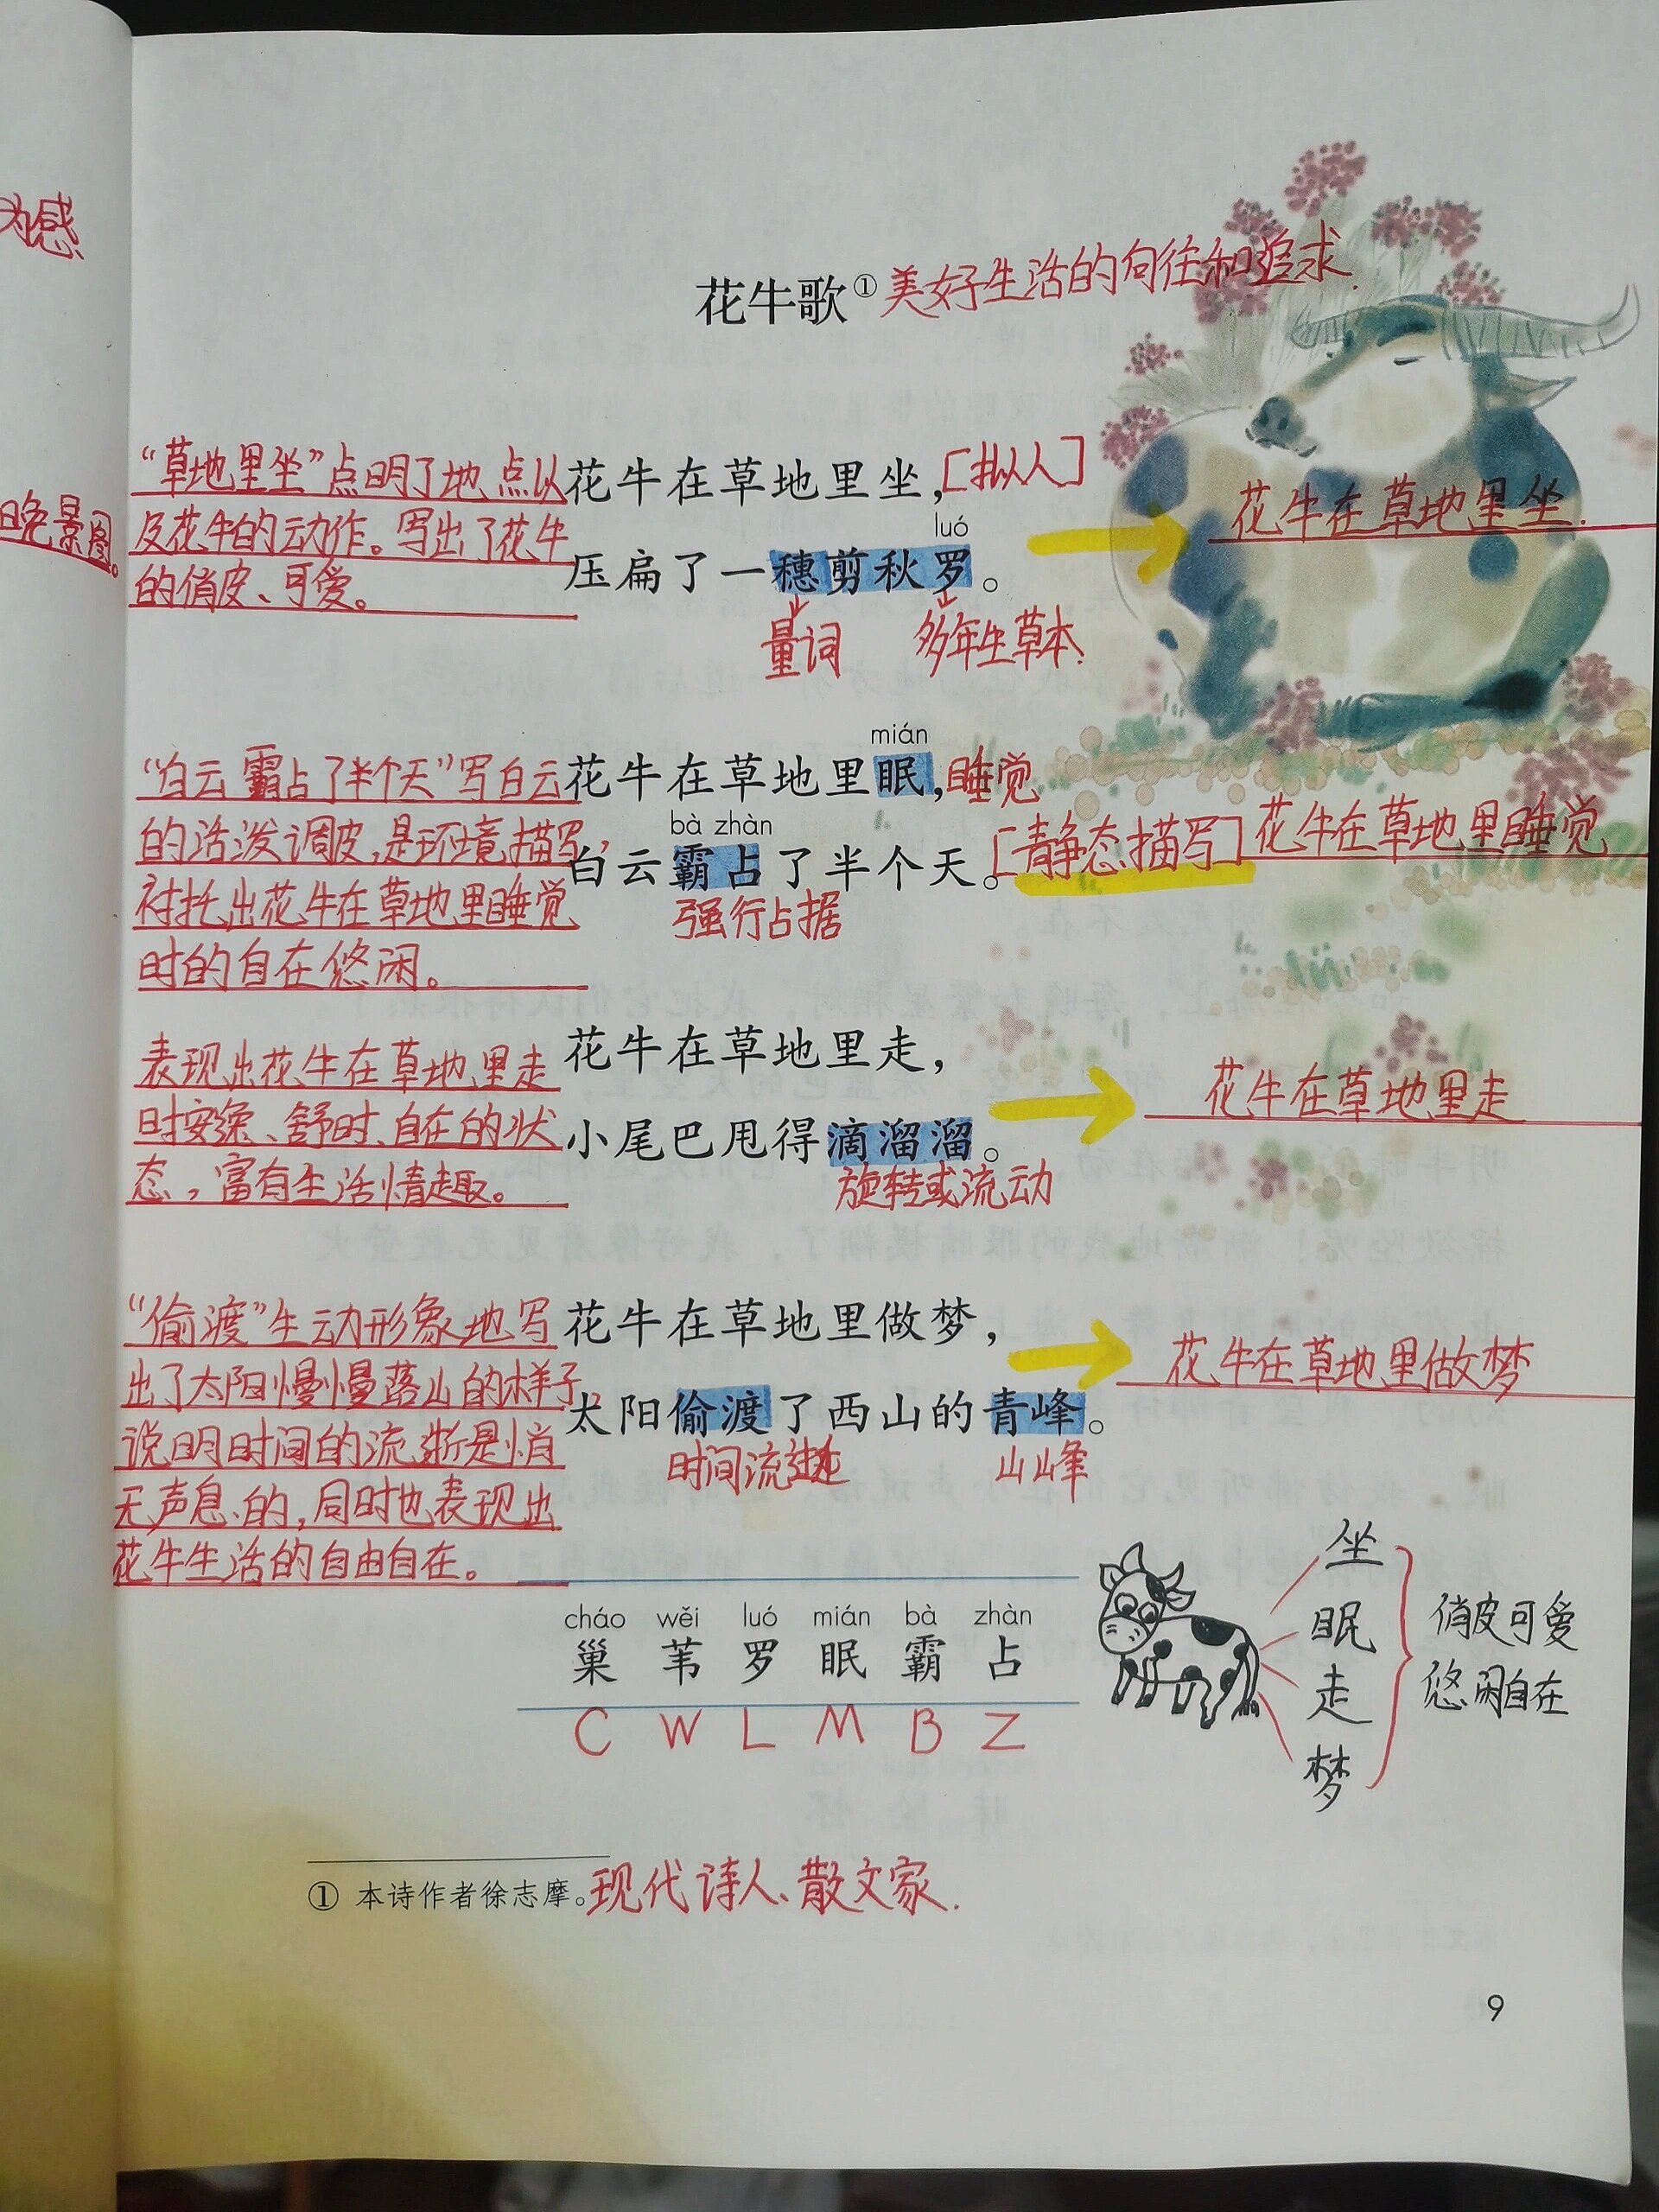 为感
晚景图。
花牛歌① 美好生活的向往和追求.
“草地里坐”点明了地点以
及花牛的动作。写出了花牛
的俏皮、可爱。
花牛在草地里坐，[拟人]
luó
压扁了一穗剪秋罗。
花牛在草地里坐.
量词 多年生草本.
“白云霸占了半个天”写白云
的活泼调皮,是环境描写,
衬托出花牛在草地里睡觉
时的自在悠闲。
mián
花牛在草地里眠，睡觉
bà zhàn
白云霸占了半个天。[静态描写] 花牛在草地里睡觉
强行占据
表现出花牛在草地里走
时安逸、舒时、自在的状
态，富有生活情趣。
花牛在草地里走，
小尾巴甩得滴溜溜。
花牛在草地里走
旋转或流动
“偷渡”生动形象地写
出了太阳慢慢落山的样子
说明时间的流逝是悄
无声息的,同时也表现出
花牛生活的自由自在。
花牛在草地里做梦，
太阳偷渡了西山的青峰。
花牛在草地里做梦
时间流逝 山峰
cháo wěi luó mián bà zhàn
巢 苇 罗 眠 霸 占
C W L M B Z
坐
眠
走
梦
俏皮可爱
悠闲自在
① 本诗作者徐志摩。现代诗人、散文家.
9